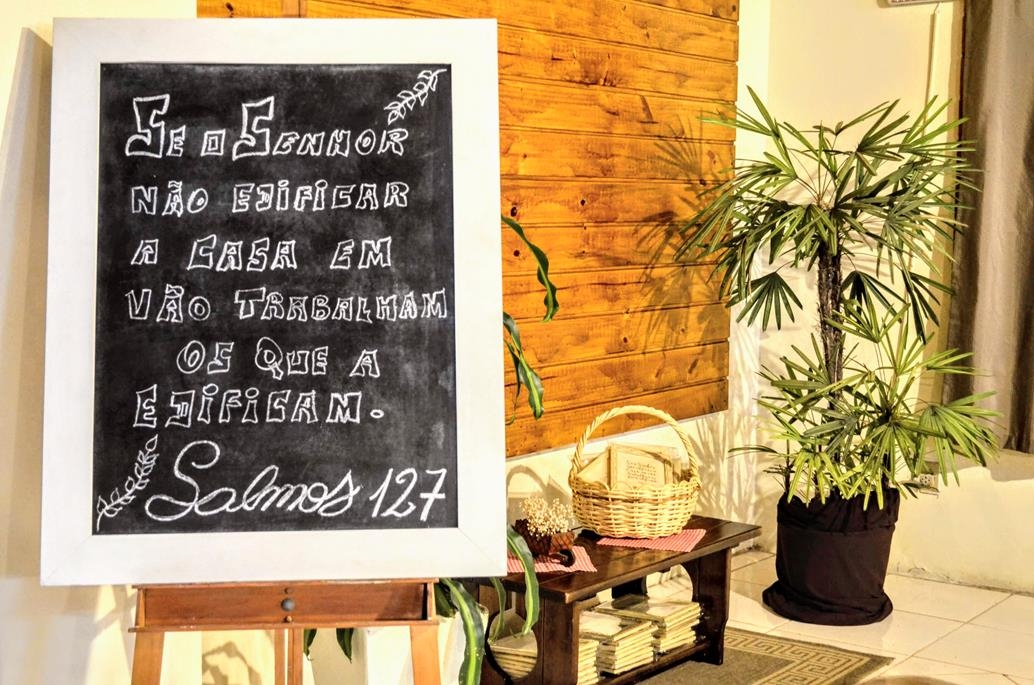 Se o Senhor
não edificar
a casa em
vão trabalham
os que a
edificam.
Salmos 127